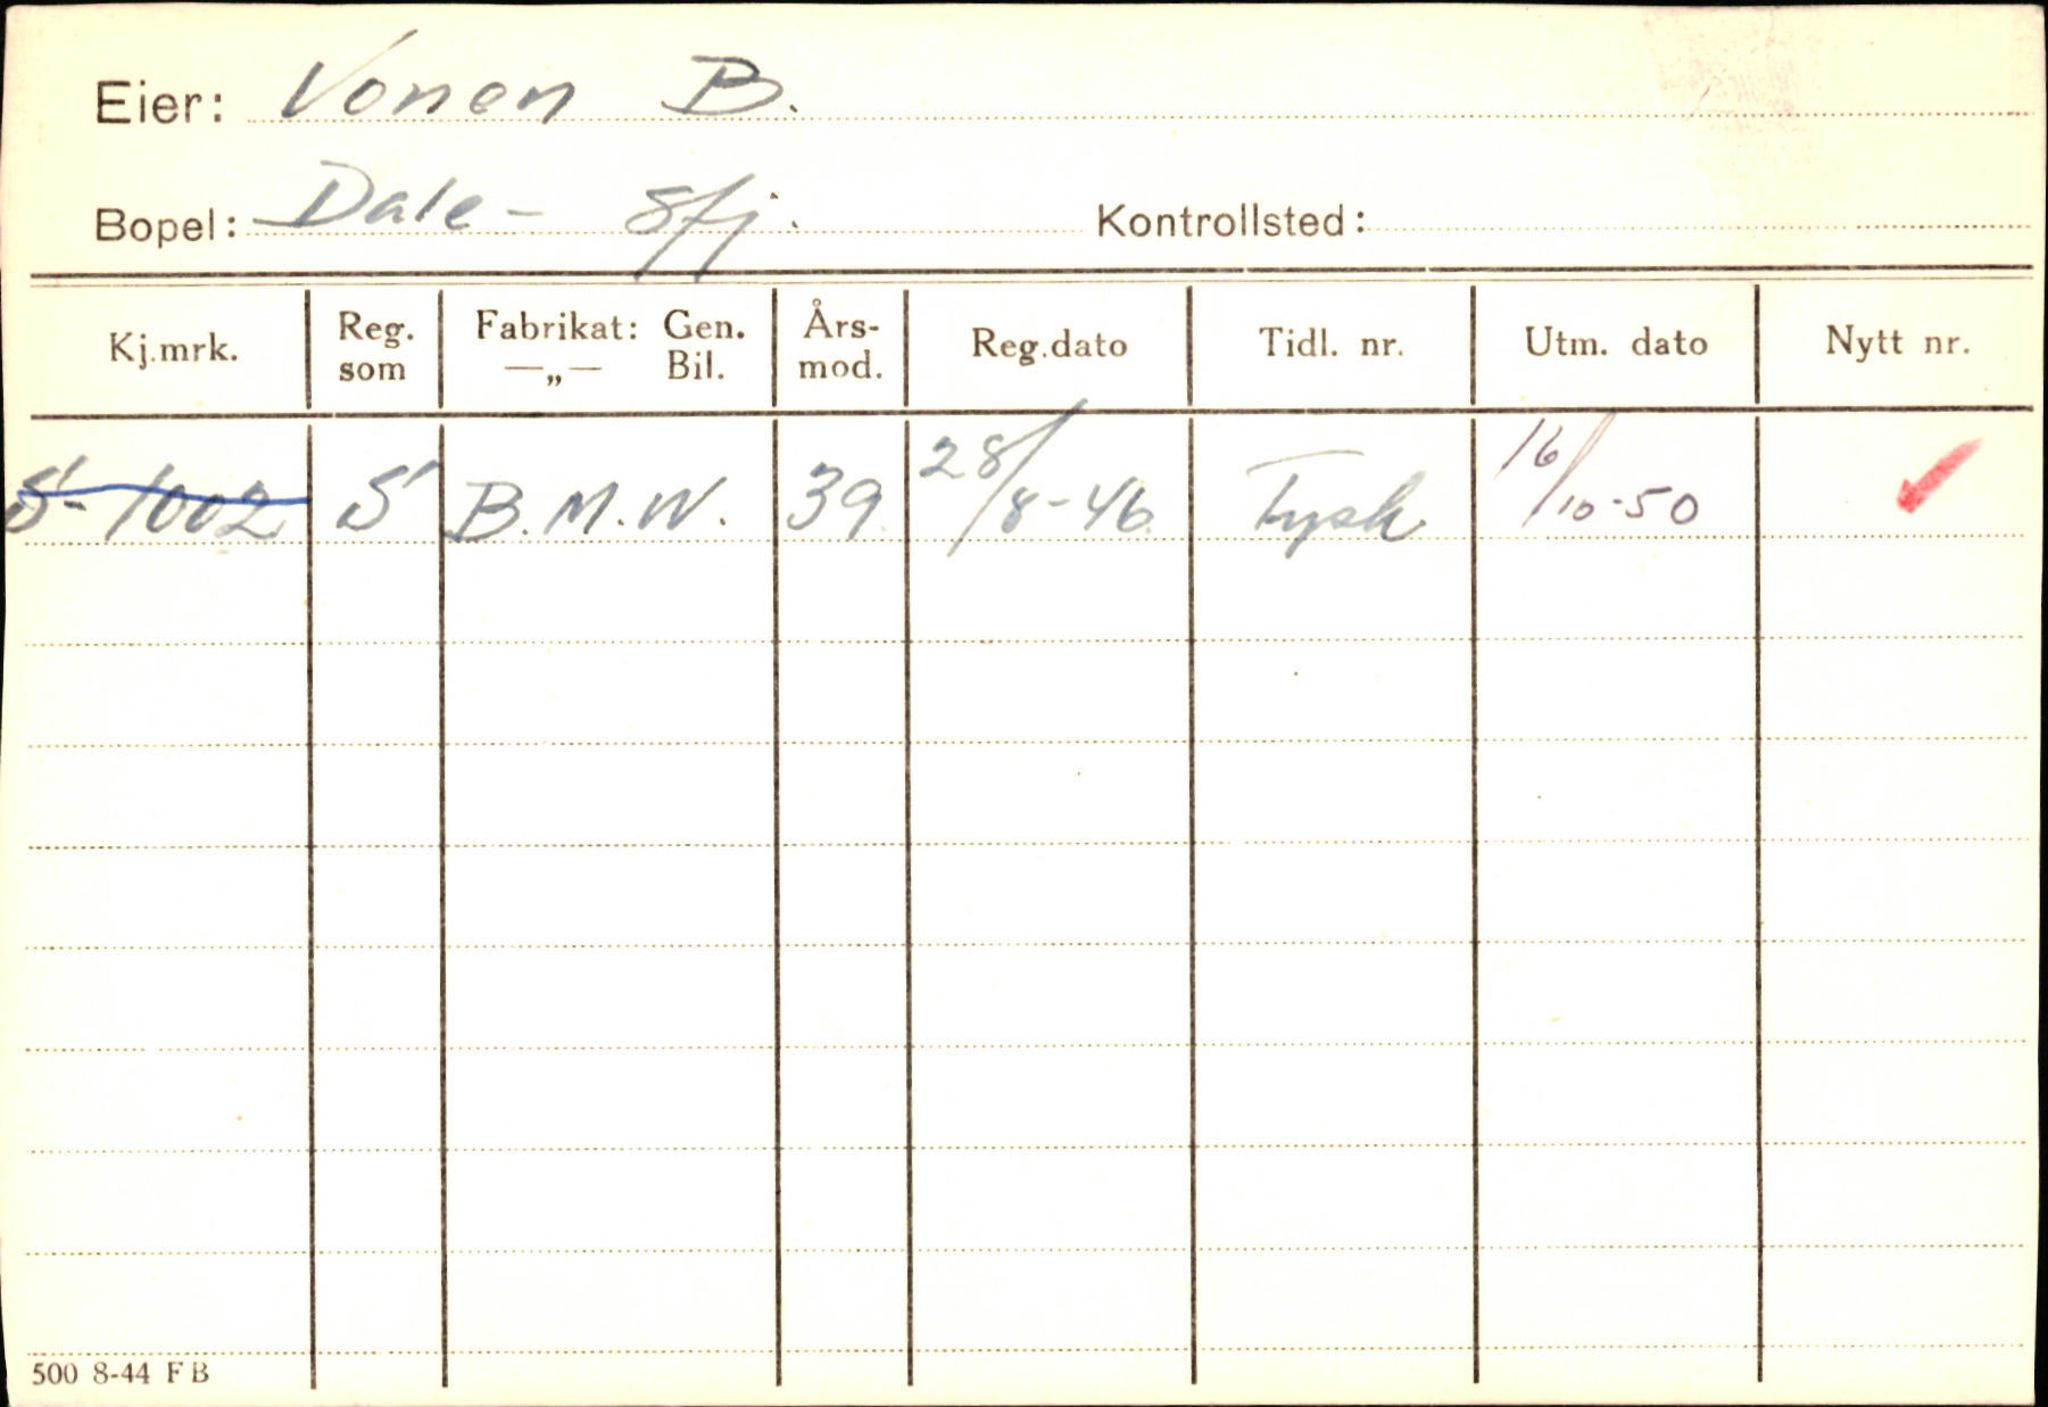 Eier: Vonen B.
Bopel: Dale - Sfj. Kontrollsted:
Kj.mrk. Reg. som Fabrikat: Gen. —„— Bil. Års- mod. Reg.dato Tidl. nr. Utm. dato Nytt nr.
S-1002 S B.M.W. 39 28/8-46 Tysk 16/10-50 ✓
500 8-44 FB